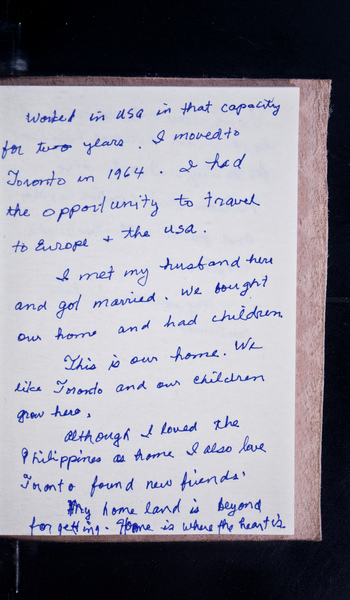 Worked in USA in that capacity
for two years. I moved to
Toronto in 1964. I had
the opportunity to travel
to Europe + the USA.
I met my husband here
and got married. We bought
our home and had children
This is our home. We
like Toronto and our children
grow here.
Although I loved the
Philippines as home I also love
Toronto found new friends.
My home land is beyond
forgetting. Home is where the heart is